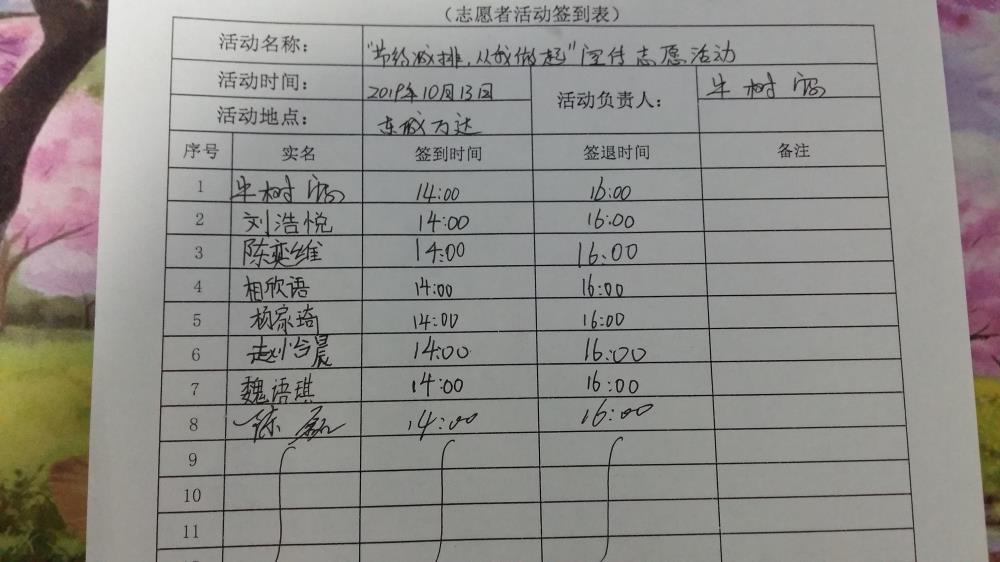 (志愿者活动签到表)
活动名称： "节约减排,从我做起"宣传志愿活动
活动时间： 2019年10月13日 活动负责人： 牛树
活动地点： 东城万达
序号 实名 签到时间 签退时间 备注
1 牛树 14:00 16:00
2 刘浩悦 14:00 16:00
3 陈奕维 14:00 16:00
4 相欣语 14:00 16:00
5 杨家琦 14:00 16:00
6 赵怡晨 14:00 16:00
7 魏语琪 14:00 16:00
8 14:00 16:00
9
10
11